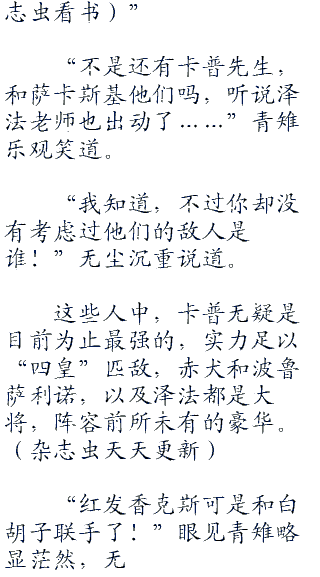 志虫看书）”
“不是还有卡普先生，
和萨卡斯基他们吗，听说泽
法老师也出动了……”青雉
乐观笑道。
“我知道，不过你却没
有考虑过他们的敌人是
谁！”无尘沉重说道。
这些人中，卡普无疑是
目前为止最强的，实力足以
“四皇”匹敌，赤犬和波鲁
萨利诺，以及泽法都是大
将，阵容前所未有的豪华。
（杂志虫天天更新）
“红发香克斯可是和白
胡子联手了！”眼见青雉略
显茫然，无